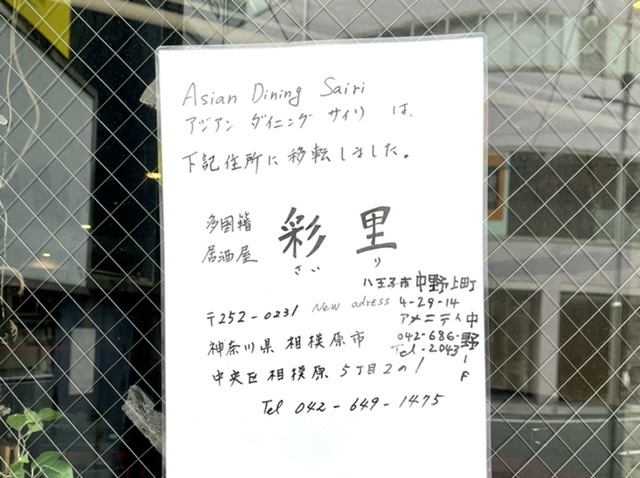 Asian Dining Sairi
アジアン ダイニング サイリ は、
下記住所に移転しました。
多国籍
居酒屋
彩里
さい り
八王子市中野上町
New adress 4-29-14
アメニティ中野1F
042-686-
Tel-2043
〒252-0231
神奈川県 相模原市
中央区相模原 5丁目2の1
Tel 042-649-1475